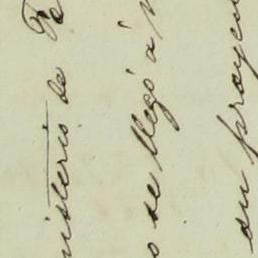 nisterio de Fo
o se llegó á
su proyec